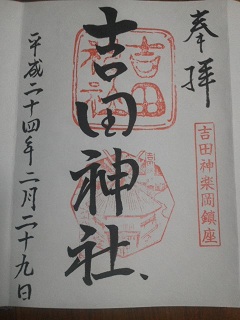 奉拝
吉田神楽岡鎮座
吉田神社
吉田神社
平成二十四年二月二十九日